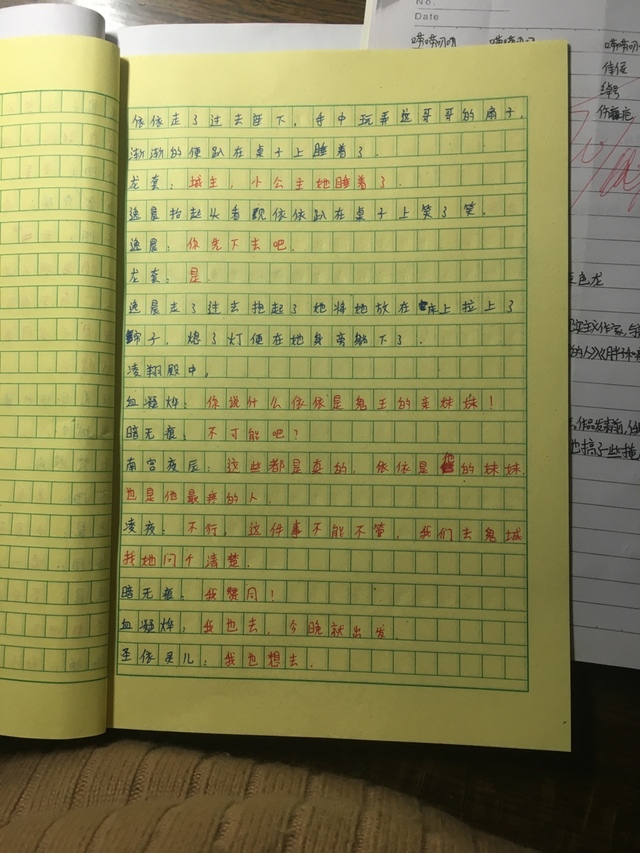 No.
Date
依依走了过去座下，手中玩弄这哥哥的扇子，
渐渐的便趴在桌子上睡着了。
龙套：城主，小公主她睡着了。
逸晨抬起头看觐依依趴在桌子上笑了笑。
逸晨：你先下去吧。
龙套：是。
逸晨走了过去抱起了她将她放在床上拉上了
子，熄了灯便在她身旁躺下了。
凌翔殿中。
血凝烨：你说什么依依是鬼王的亲妹妹！
暗无痕：不可能吧？
南宫夜辰：这些都是真的，依依是他的妹妹，
也是他最疼的人。
凌夜：不行，这件事不能不管，我们去鬼城
找她问个清楚。
暗无痕：我赞同！
血凝烨：我也去，今晚就出发。
圣依灵儿：我也想去。
色龙
也搞了些